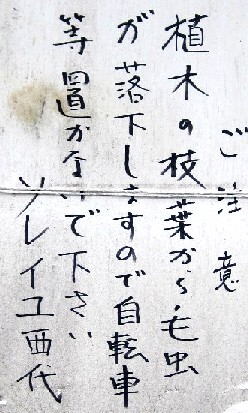 ご注意
植木の枝葉から毛虫
が落下しますので自転車
等置かないで下さい
ソレイユ西代